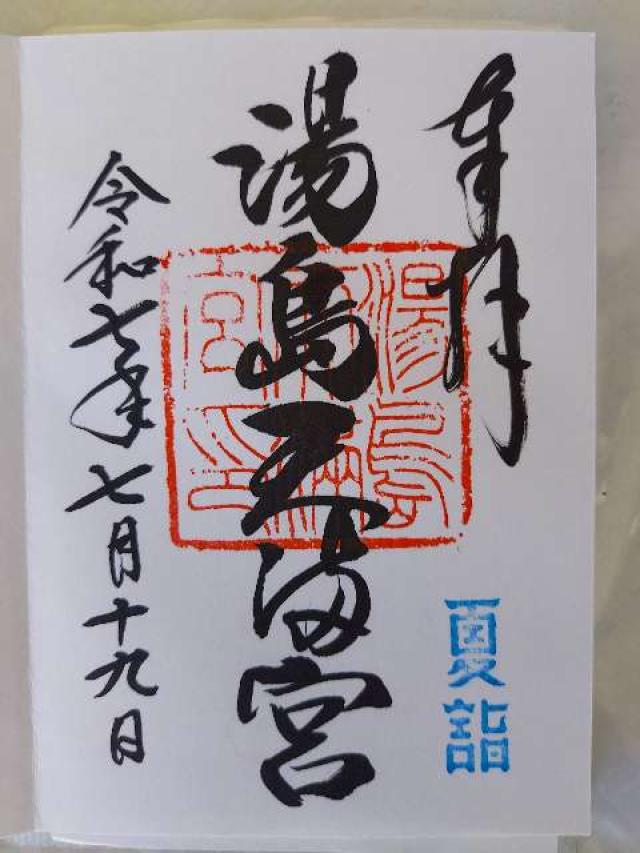 奉拝
夏詣
湯島天満宮
湯島天満宮印
令和七年七月十九日